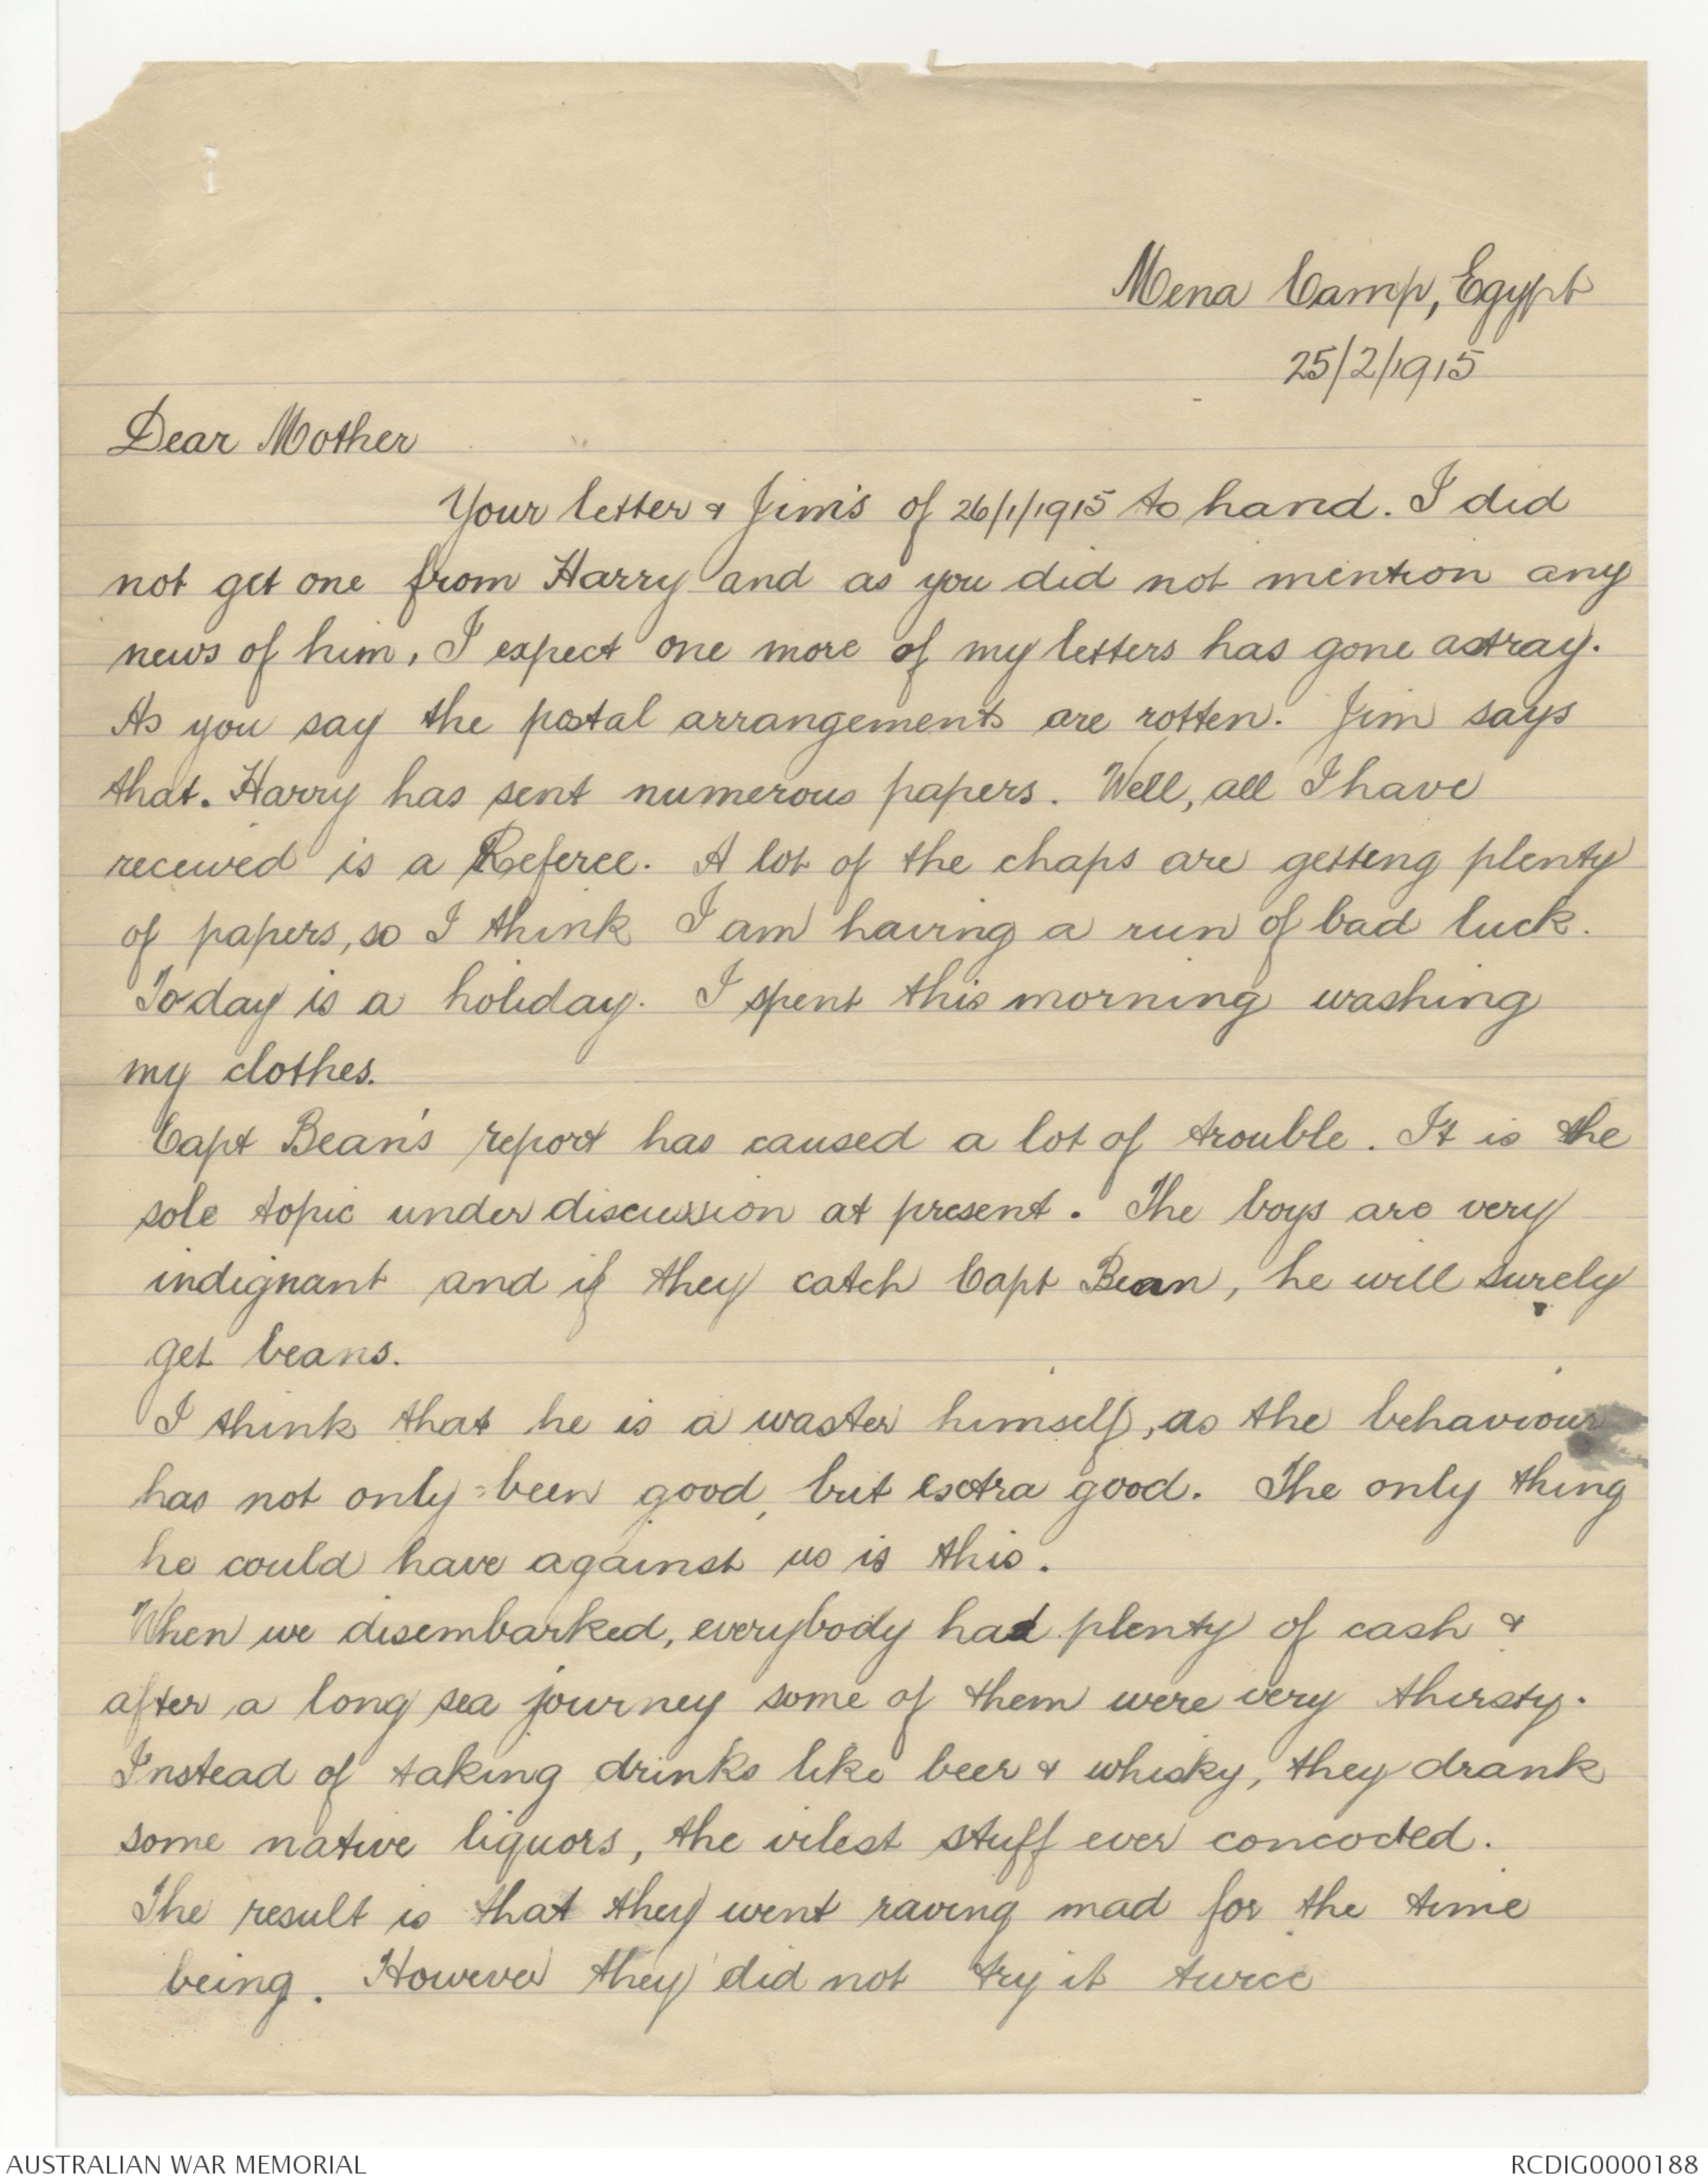 Mena Camp, Egypt
25/2/1915
Dear Mother
Your letter & Jim's of 26/1/1915 to hand. I did
not get one from Harry and as you did not mention any
news of him, I expect one more of my letters has gone astray.
As you say the postal arrangements are rotten. Jim says
that. Harry has sent numerous papers. Well, all I have
received is a Referee. A lot of the chaps are getting plenty
of papers, so I think I am having a run of bad luck.
Today is a holiday. I spent this morning washing
my clothes.
Capt Bean's report has caused a lot of trouble. It is the
sole topic under discussion at present. The boys are very
indignant and if they catch Capt Bean, he will surely
get beans.
I think that he is a waster himself, as the behaviour
has not only been good, but extra good. The only thing
he could have against us is this.
When we disembarked, everybody had plenty of cash &
after a long sea journey some of them were very thirsty.
Instead of taking drinks like beer & whisky, they drank
some native liquors, the vilest stuff ever concocted.
The result is that they went raving mad for the time
being. However they did not try it twice
AUSTRALIAN WAR MEMORIAL
RCDIG0000188